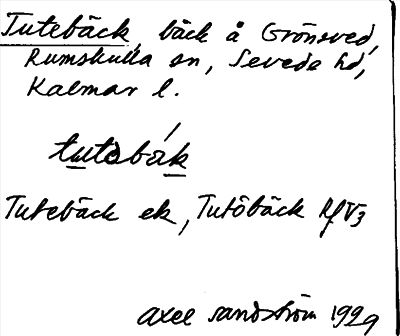 Tutebäck, bäck å Grönsved,
Rumskulla sn, Sevede hd,
Kalmar l.
tutəbäk
Tutebäck ek, Tutöbäck RfV3
Axel Sandström 1929